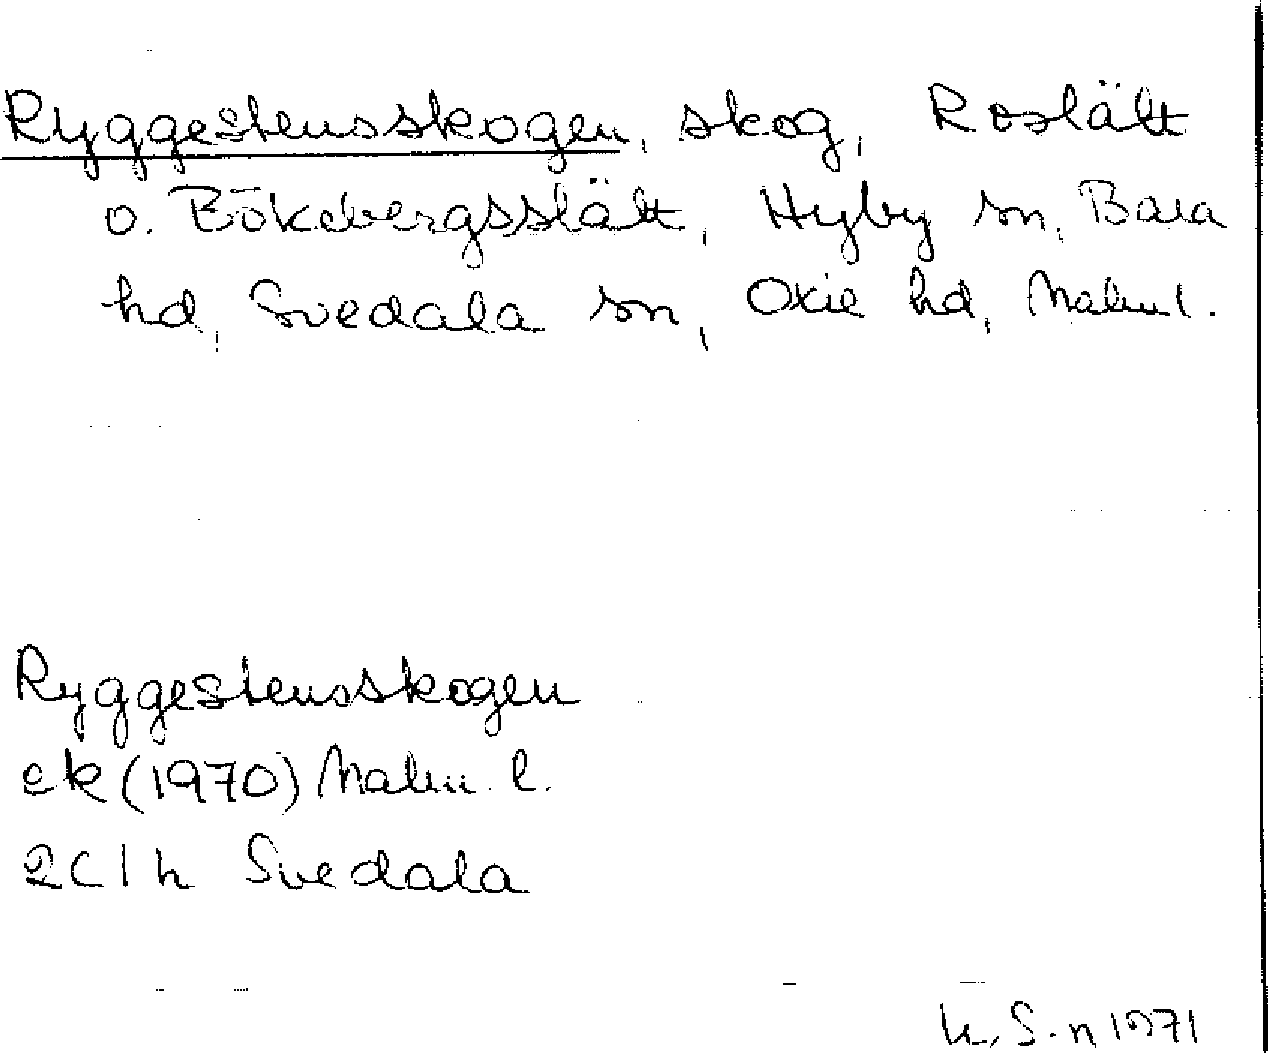 Ryggestensskogen, skog, Roslätt
o. Bökebergsslätt, Hyby sn, Bara
hd, Svedala sn, Oxie hd, Malm l.
Ryggestensskogen
ek (1970) Malm. l.
2C 1 h Svedala
S-n 1971